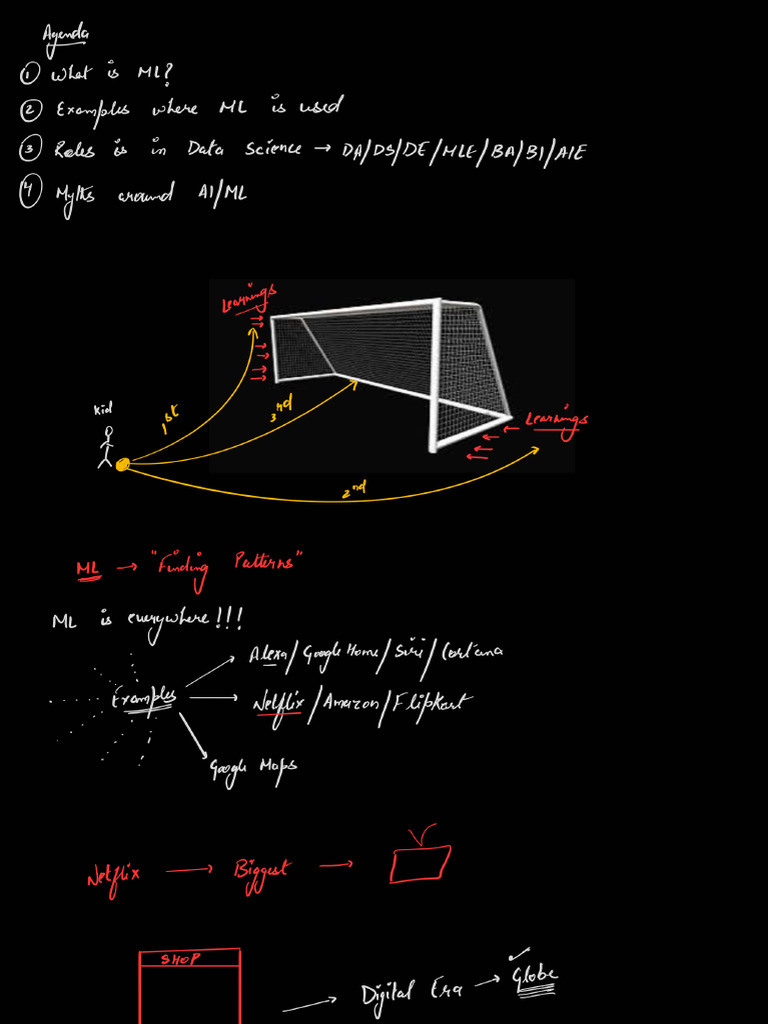 Agenda
① What is ML?
② Examples where ML is used
③ Roles is in Data Science → DA/DS/DE/MLE/BA/BI/AIE
④ Myths around AI/ML
Learnings
Kid
1st
3rd
Learnings
2nd
ML → "Finding Patterns"
ML is everywhere!!!
Examples
Alexa/Google Home/Siri/Cortana
Netflix/Amazon/Flipkart
Google Maps
Netflix → Biggest →
SHOP
→ Digital Era → Globe